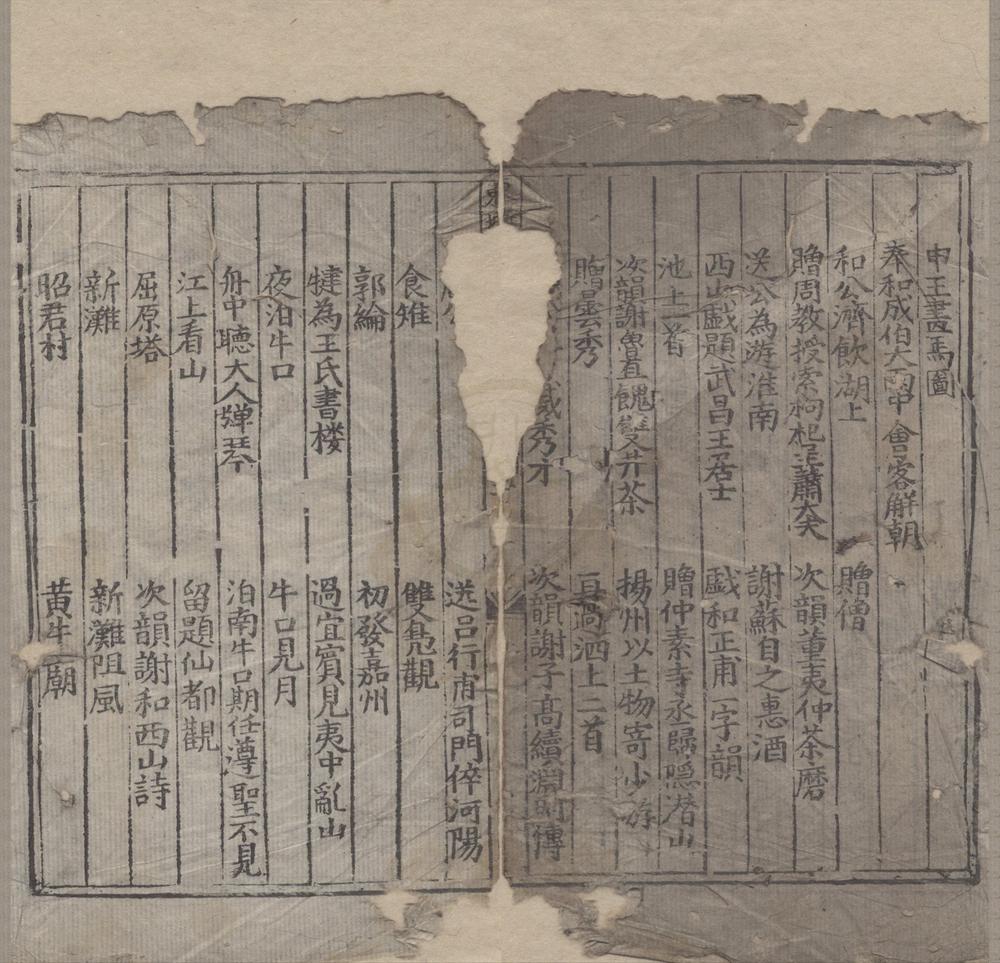 申王畫馬圖
奉和成伯大雨中會客解嘲
和公濟飲湖上　贈僧
贈周教授索枸杞呈蕭大夫　次韻董夷仲茶磨
送公為游淮南　謝蘇自之惠酒
西山戲題武昌王居士　戲和正甫一字韻
池上二首　贈仲素寺丞歸隱潜山
次韻謝魯直餽雙井茶　揚州以土物寄少游
贈曇秀　再過泗上二首
秀才　次韻謝子高續淵明傳
送吕行甫司門倅河陽
食雉　雙鳧觀
郭綸　初發嘉州
犍為王氏書樓　過宜賓見夷中亂山
夜泊牛口　牛口見月
舟中聽大人彈琴　泊南牛口期任遵聖不見
江上看山　留題仙都觀
屈原塔　次韻謝和西山詩
新灘　新灘阻風
昭君村　黄牛廟